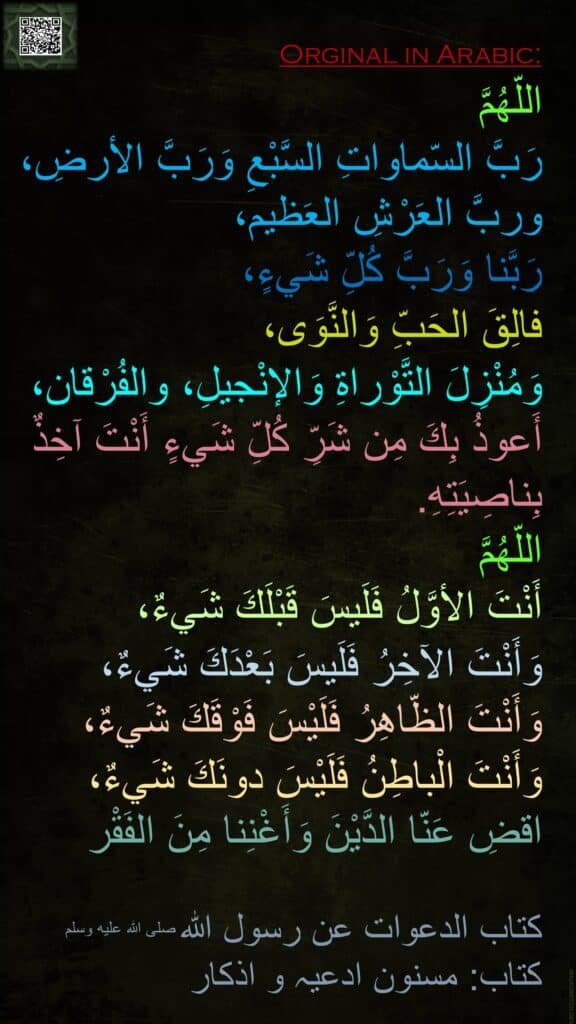 Orginal in Arabic:
اللّهُمَّ
رَبَّ السّماواتِ السَّبْعِ وَرَبَّ الأرضِ،
وربَّ العَرْشِ العَظيم،
رَبَّنا وَرَبَّ كُلِّ شَيءٍ،
فالِقَ الحَبِّ وَالنَّوَى،
وَمُنْزِلَ التَّوْراةِ وَالإنْجيلِ، والفُرْقان،
أَعوذُ بِكَ مِن شَرِّ كُلِّ شَيءٍ أَنْتَ آخِذٌ
بِناصِيَتِهِ.
اللّهُمَّ
أَنْتَ الأوَّلُ فَلَيسَ قَبْلَكَ شَيءٌ،
وَأَنْتَ الآخِرُ فَلَيسَ بَعْدَكَ شَيءٌ،
وَأَنْتَ الظّاهِرُ فَلَيْسَ فَوْقَكَ شَيءٌ،
وَأَنْتَ الْباطِنُ فَلَيْسَ دونَكَ شَيءٌ،
اقضِ عَنّا الدَّيْنَ وَأَغْنِنا مِنَ الفَقْر
كتاب الدعوات عن رسول الله صلى الله عليه وسلم
کتاب: مسنون ادعیہ و اذکار